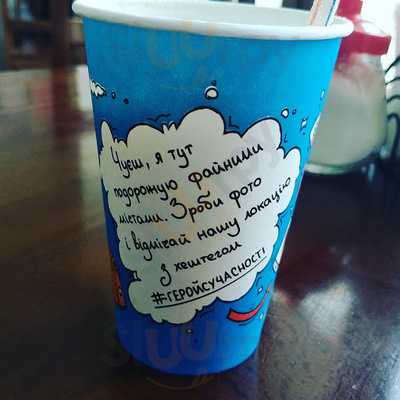 Чуєш, я тут
подорожую файними
містами. Зроби фото
і відмічай нашу локацію
з хештегом
#ГЕРОЙСУЧАСНОСТІ